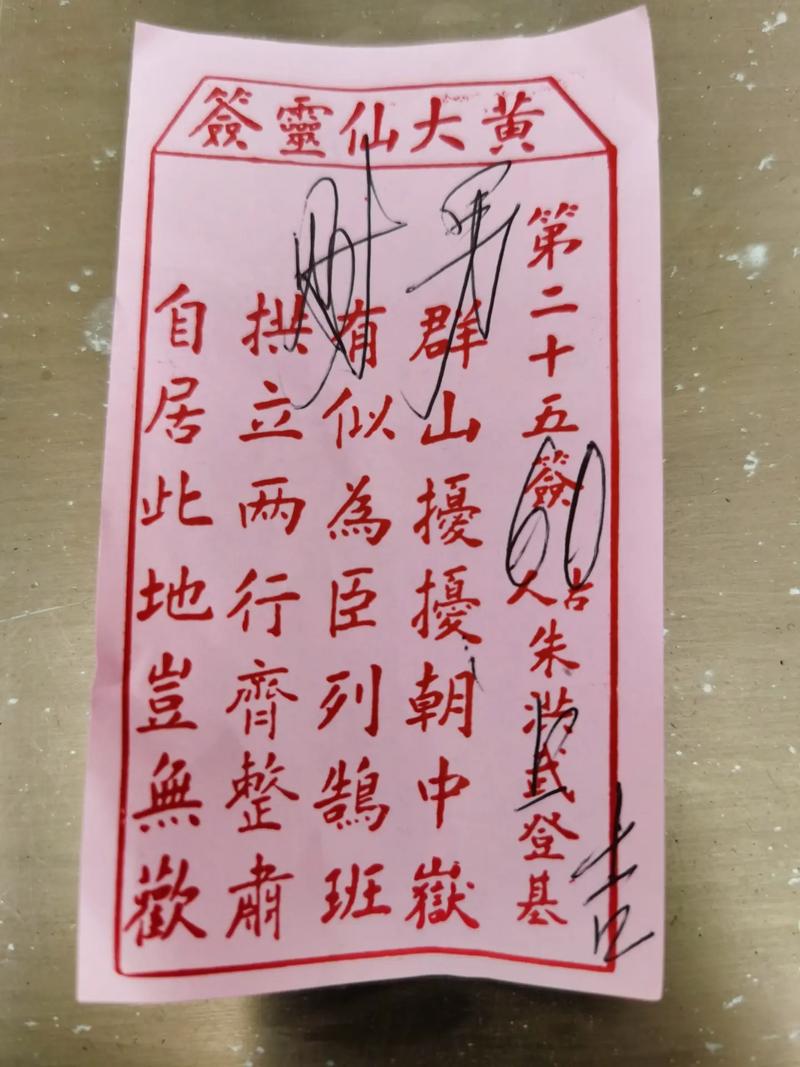 黃大仙靈簽
第二十五簽 古人朱洪武登基
群山擾擾朝中嶽
有似為臣列鵠班
拱立两行齊整肅
自居此地豈無歡
60